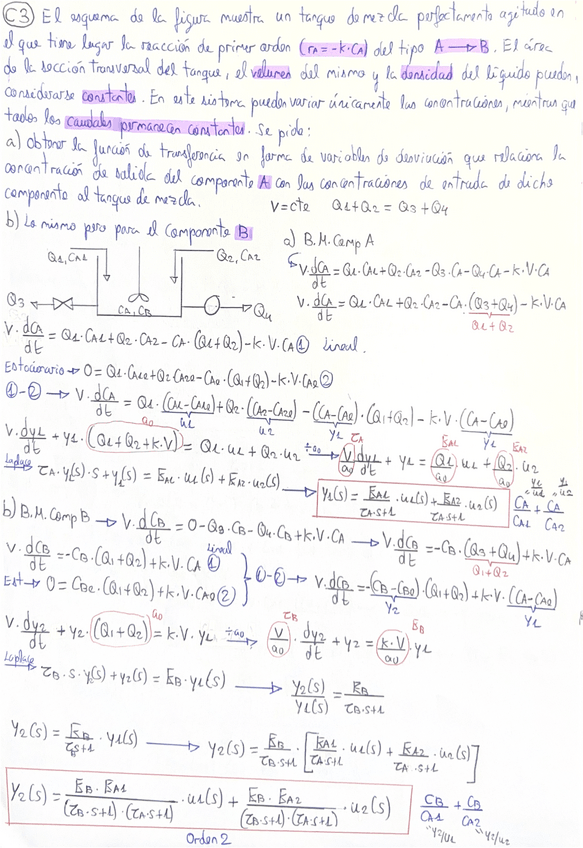 C3 El esquema de la figura muestra un tanque de mezcla perfectamente agitado en
el que tiene lugar la reacción de primer orden (rA=-k·CA) del tipo A → B. El área
de la sección transversal del tanque, el volumen del mismo y la densidad del líquido pueden
considerarse constantes. En este sistema pueden variar únicamente las concentraciones, mientras que
todos los caudales permanecen constantes. Se pide:
a) Obtener la función de transferencia en forma de variables de desviación que relaciona la
concentración de salida del componente A con las concentraciones de entrada de dicho
componente al tanque de mezcla.
V=cte Q1+Q2 = Q3+Q4
b) Lo mismo pero para el componente B
a) B.M. Comp A
Q1, CA1
Q2, CA2
Q3
CA, CB
Q4
V·dCA/dt = Q1·CA1+Q2·CA2-Q3·CA-Q4·CA-k·V·CA
V·dCA/dt = Q1·CA1+Q2·CA2-CA·(Q3+Q4)-k·V·CA
Q1+Q2
V·dCA/dt = Q1·CA1+Q2·CA2-CA·(Q1+Q2)-k·V·CA ① Lineal.
Estacionario → 0=Q1·CA1e+Q2·CA2e-CAe·(Q1+Q2)-k·V·CAe ②
①-② → V·dCA/dt = Q1·(CA1-CA1e)+Q2·(CA2-CA2e)-(CA-CAe)·(Q1+Q2)-k·V·(CA-CAe)
u1 u2 y1 y1
V·dy1/dt + y1·(Q1+Q2+k·V) = Q1·u1+Q2·u2 ÷a0 → V/a0 dy1/dt + y1 = Q1/a0·u1 + Q2/a0·u2
a0 τA KA1 KA2
Laplace → τA·y1(s)·s+y1(s) = KA1·u1(s)+KA2·u2(s) → y1(s) = KA1/τA·s+1·u1(s)+KA2/τA·s+1·u2(s)
CA/CA1 + CA/CA2
"y1/u1" "y1/u2"
b) B.M. Comp B → V·dCB/dt = 0-Q3·CB-Q4·CB+k·V·CA → V·dCB/dt = -CB·(Q3+Q4)+k·V·CA
Q1+Q2
V·dCB/dt = -CB·(Q1+Q2)+k·V·CA ① Lineal
Est → 0=CBe·(Q1+Q2)+k·V·CAe ②
①-② → V·dCB/dt = -(CB-CBe)·(Q1+Q2)+k·V·(CA-CAe)
y2 y1
V·dy2/dt + y2·(Q1+Q2) = k·V·y1 ÷a0 → V/a0·dy2/dt + y2 = k·V/a0·y1
a0 τB KB
Laplace → τB·s·y2(s)+y2(s) = KB·y1(s) → y2(s)/y1(s) = KB/τB·s+1
y2(s) = KB/τB·s+1·y1(s) → y2(s) = KB/τB·s+1·[KA1/τA·s+1·u1(s)+KA2/τA·s+1·u2(s)]
y2(s) = KB·KA1/(τB·s+1)·(τA·s+1)·u1(s) + KB·KA2/(τB·s+1)·(τA·s+1)·u2(s)
CB/CA1 + CB/CA2
"y2/u1" "y2/u2"
Orden 2